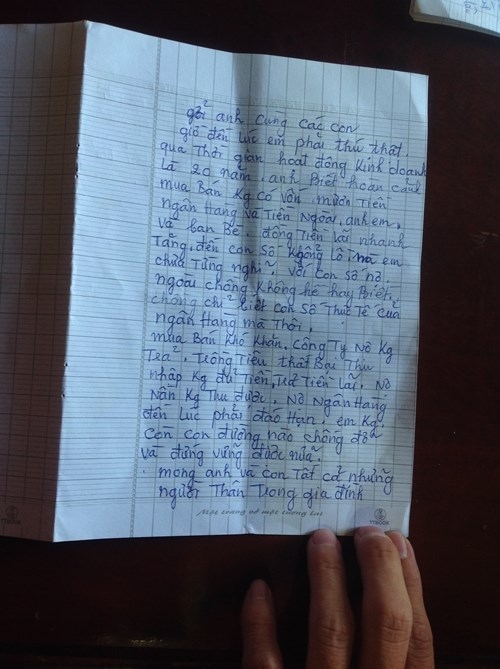 gởi anh cùng các con
giờ đến lúc em phải thú thật.
qua Thời gian hoạt động Kinh doanh
Là 20 năm. anh Biết hoàn cảnh
mua Bán Kg có vốn. mượn Tiền
ngân Hàng và Tiền Ngoài, anh em,
và bạn Bè. đồng Tiền Lãi nhanh
Tăng. đến con Số Khổng Lồ. mà em
chưa Từng nghĩ. với con số nợ.
ngoài chồng Không hề hay Biết.
chồng chỉ biết con Số Thực Tế của
ngân Hàng mà Thôi.
mua Bán Khó Khăn. Công Ty Nợ Kg
Trả. Trồng Tiêu thất Bại Thu
nhập Kg đủ Tiền, Trả Tiền Lãi. Nợ
Nần Kg Thu được. Nợ Ngân Hàng
đến Lúc phải đáo Hạn. em Kg
Còn con đường nào chống đỡ
và đứng vững được nữa.
mong anh và con Tất cả những
người Thân Trong gia đình